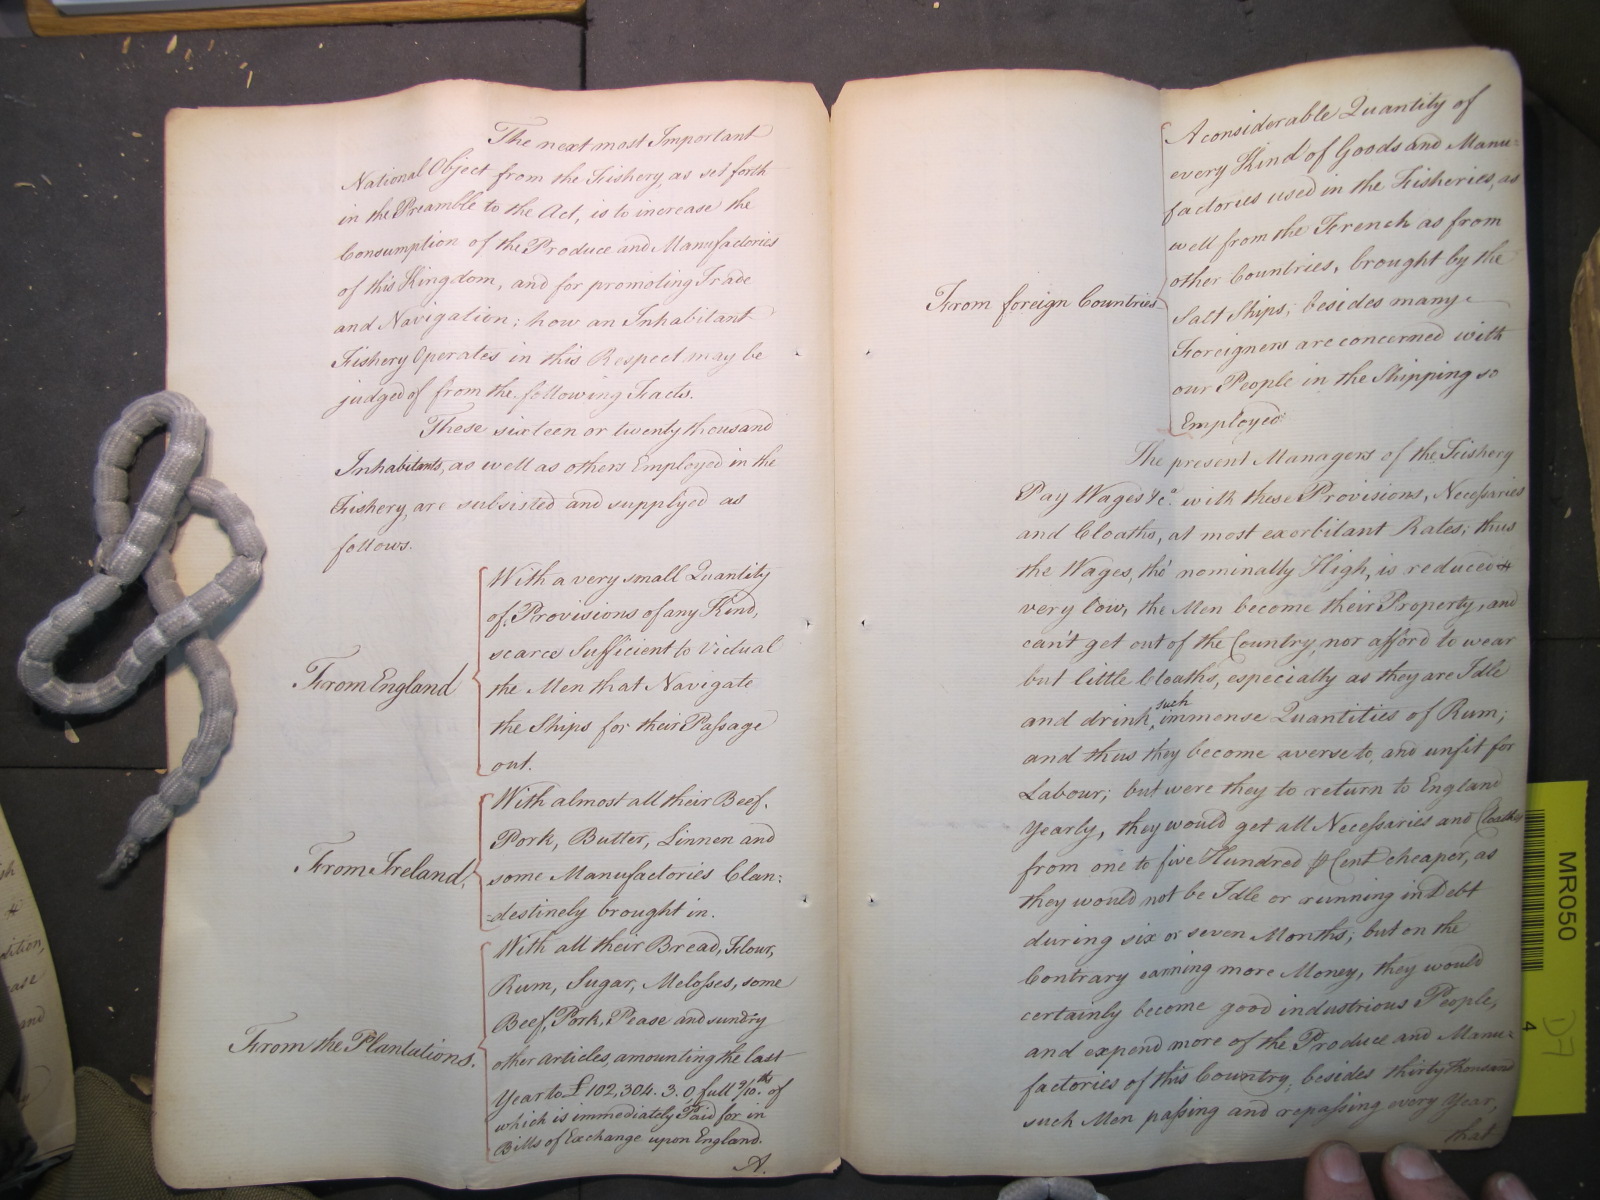 The next most Important
National Object from the Fishery, as set forth
in the Preamble to the Act, is to increase the
Consumption of the Produce and Manufactories
of this Kingdom, and for promoting Trade
and Navigation; how an Inhabitant
Fishery Operates in this Respect may be
judged of from the following Facts.
These sixteen or twenty thousand
Inhabitants, as well as others Employed in the
Fishery, are subsisted and supplyed as
follows.
With a very small Quantity
of Provisions of any Kind,
scarce Sufficient to Victual
From England
the Men that Navigate
the Ships for their Passage
out.
With almost all their Beef,
Pork, Butter, Linnen and
From Ireland,
some Manufactories Clan=
=destinely brought in.
With all their Bread, Flour,
Rum, Sugar, Melosses, some
Beef, Pork, Pease and sundry
From the Plantations.
other articles, amounting the last
Year to £102,304.3.0 full 9/10.ths of
which is immediately Paid for in
Bills of Exchange upon England.
A.
A considerable Quantity of
every Kind of Goods and Manu=
factories used in the Fisheries, as
well from the French as from
other Countries, brought by the
From foreign Countries
Salt Ships; besides many
Foreigners are concerned with
our People in the Shipping so
Employed
The present Managers of the Fishery
Pay Wages &c.a with these Provisions, Necessaries
and Cloaths, at most exorbitant Rates; thus
the Wages, tho' nominally High, is reduced
very low, the Men become their Property, and
can't get out of the Country, nor afford to wear
but little Cloaths, especially as they are Idle
and drink such immense Quantities of Rum;
and thus they become averse to, and unfit for
Labour; but were they to return to England
Yearly, they would get all Necessaries and Cloaths
from one to five Hundred ⅌ Cent cheaper, as
they would not be Idle or running in Debt
during six or seven Months; but on the
Contrary earning more Money, they would
certainly become good industrious People,
and expend more of the Produce and Manu=
factories of this Country; besides thirty thousand
such Men passing and repassing every Year,
that
MR050
D7
4
and